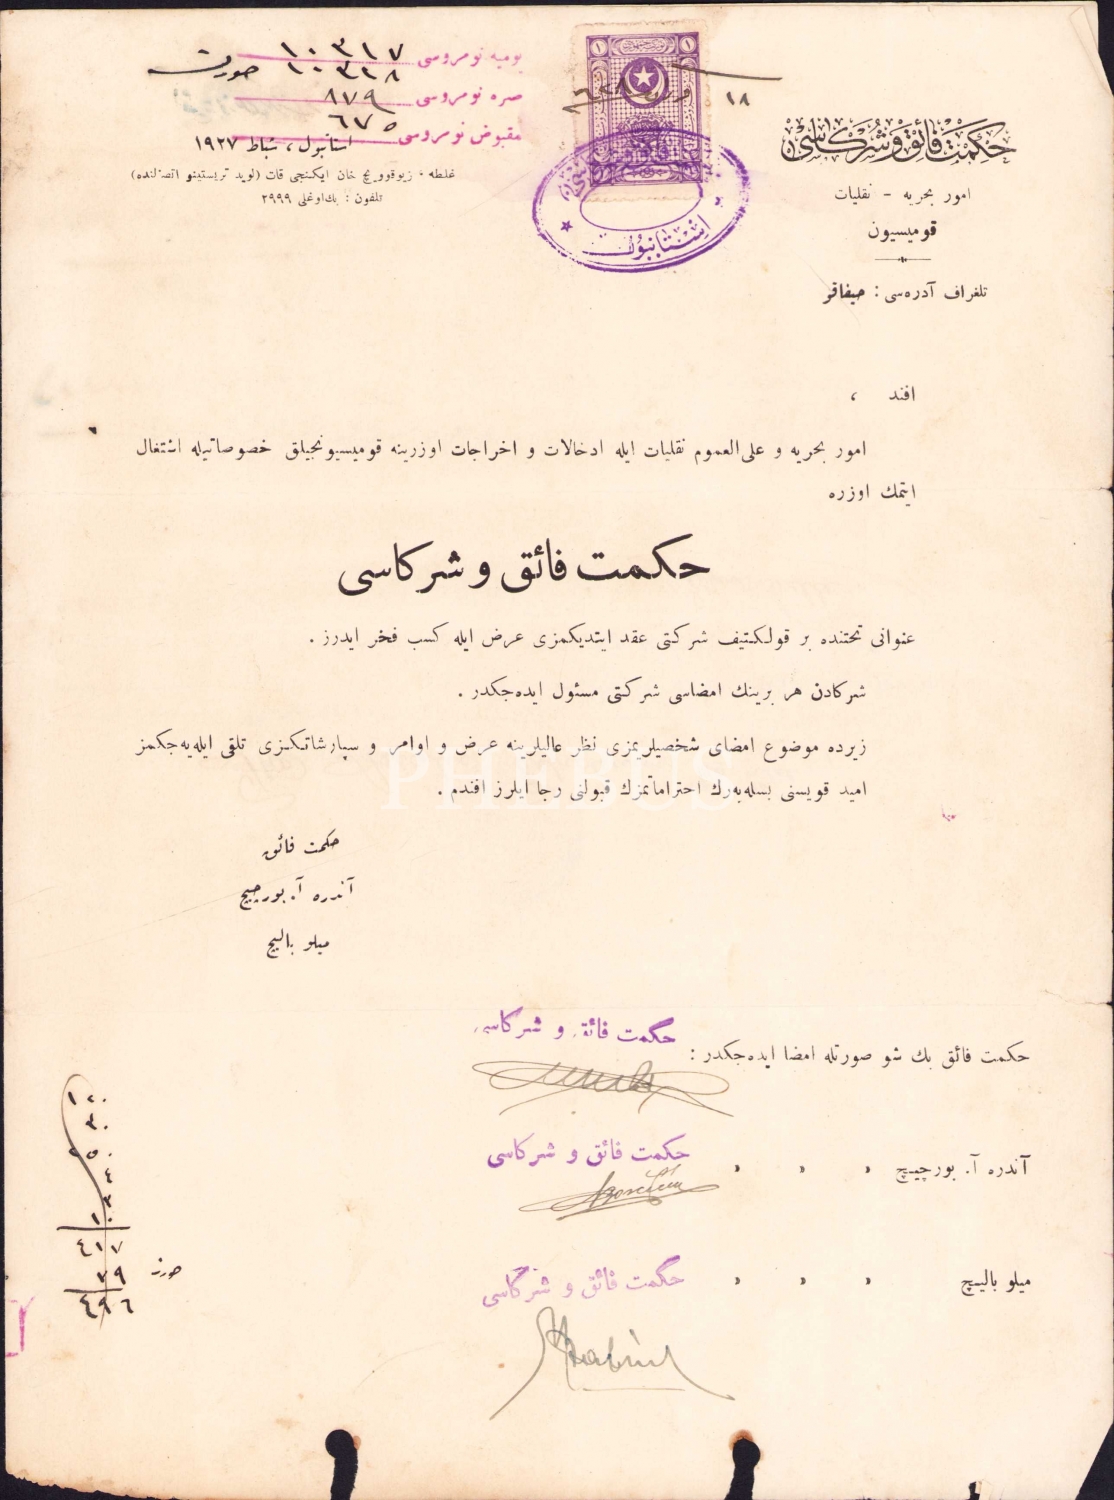 يوميه نومروسی ١٠٣١٧
١٠٣١٨ صورت
صره نومروسی ٨٧٩
مقبوض نومروسی ٦٧٥
استانبول ، شباط ١٩٢٧
غلطه ، زيوقوويچ خان ايكنجی قات (لويد تريستينو اتصالنده)
تلفون : بك اوغلی ٢٩٩٩
١٨
استانبول
حكمت فائق وشركاسی
امور بحريه - نقليات
قوميسيون
تلغراف آدره‌سی : حيفاقر
افند ،
امور بحريه و علی‌العموم نقليات ايله ادخالات و اخراجات اوزرينه قوميسيونجيلق خصوصاتيله اشتغال
ايتمك اوزره
حكمت فائق و شركاسی
عنوانی تحتنده بر قولكتيف شركتی عقد ايتديكمزی عرض ايله كسب فخر ايدرز .
شركادن هر برينك امضاسی شركتی مسئول ايده‌جكدر .
زيرده موضوع امضای شخصيلريمزی نظر عاليلرينه عرض و اوامر و سپارشاتكزی تلقی ايله‌يه‌جكمز
اميد قويسنی بسله‌يه‌رك احتراماتمزك قبولنی رجا ايلرز افندم .
PHEBUS
حكمت فائق
آندره آ. بورچيچ
ميلو باليچ
حكمت فائق و شركاسی
حكمت فائق بك شو صورتله امضا ايده‌جكدر :
حكمت فائق و شركاسی
آندره آ. بورچيچ » » »
حكمت فائق و شركاسی
ميلو باليچ » » »
٤١٧
٧٩ صورت
٤٩٦